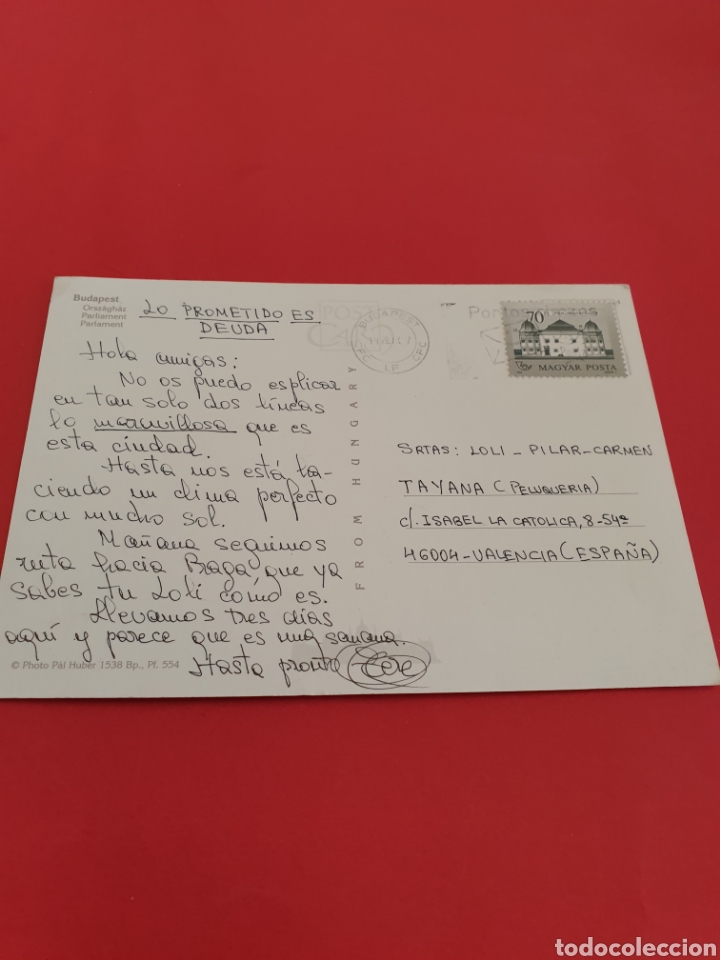 Budapest
Országház
Parliament
Parlament
LO PROMETIDO ES
DEUDA
Hola amigas:
No os puedo esplicar
en tan solo dos líneas
lo maravillosa que es
esta ciudad.
Hasta nos está ha-
ciendo un clima perfecto
con mucho sol.
Mañana seguimos
ruta hacia Praga, que ya
sabes tu Loli como es.
Llevamos tres días
aquí y parece que es una semana.
Hasta pronto Tere
© Photo Pál Huber 1538 Bp., Pf. 554
FROM HUNGARY
POST
CARD
BUDAPEST
70
MAGYAR POSTA
SRTAS: LOLI - PILAR-CARMEN
TAYANA (PELUQUERIA)
c/. ISABEL LA CATOLICA, 8-54ª
46004-VALENCIA (ESPAÑA)
todocoleccion